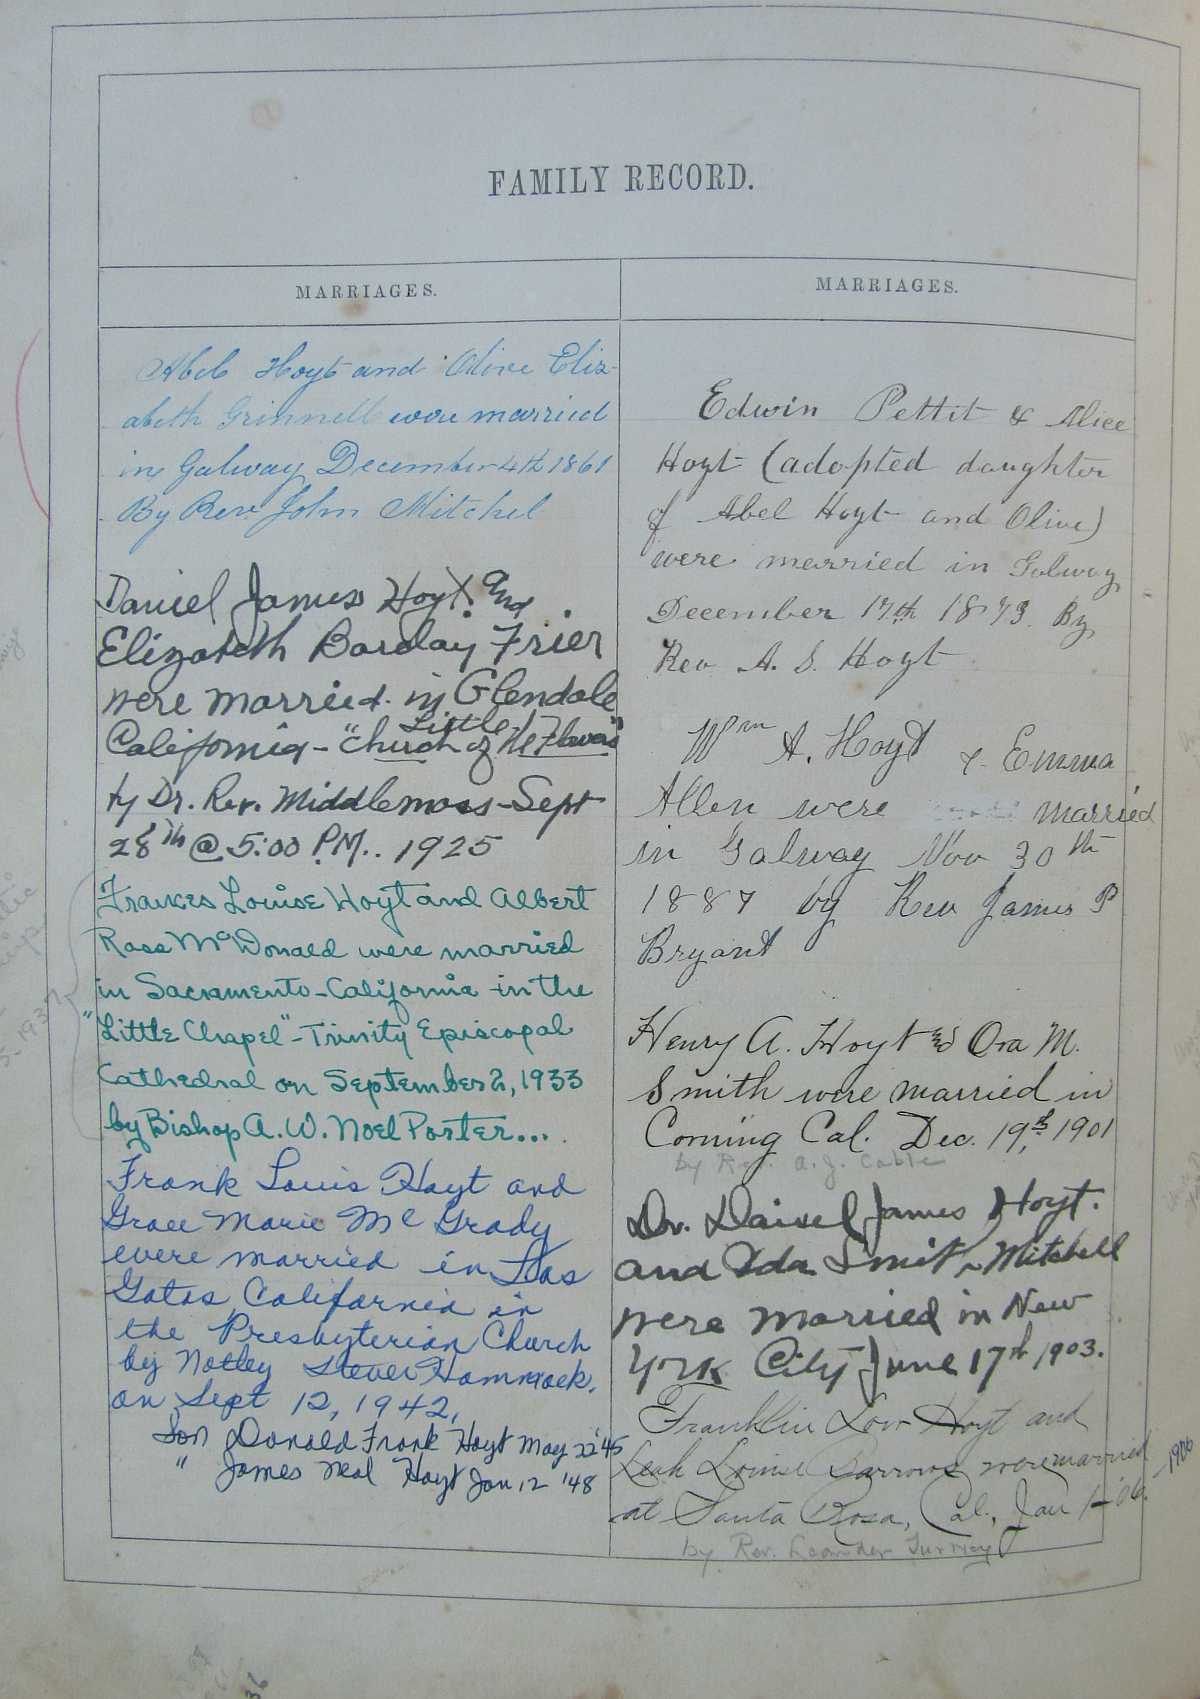 FAMILY RECORD.
MARRIAGES.
Abel Hoyt and Olive Eliz-
abeth Grinnell were married
in Galway December 4th 1861
By Rev. John Mitchel
Daniel James Hoyt. and
Elizabeth Barclay Frier
were married in Glendale
California - "Little Church of the Flowers"
by Dr. Rev. Middlemass - Sept
28th @ 5:00 P.M.. 1925
Frances Louise Hoyt and Albert
Ross McDonald were married
in Sacramento - California - in the
"Little Chapel" - Trinity Episcopal
Cathedral on September 2, 1933
by Bishop A. W. Noel Porter...
Frank Louis Hoyt and
Grace Marie McGrady
were married in Los
Gatos, California in
the Presbyterian Church
by Notley Hammack.
on Sept 12, 1942.
Son Donald Frank Hoyt May 22 '45
" James Neal Hoyt Jan 12 '48
MARRIAGES.
Edwin Pettit & Alice
Hoyt (adopted daughter
of Abel Hoyt and Olive)
were married in Galway
December 17th 1873. By
Rev A. S. Hoyt
Wm A. Hoyt & Emma
Allen were married
in Galway Nov 30th
1887 by Rev James P
Bryant
Henry A. Hoyt and Ora M.
Smith were married in
Corning Cal. Dec. 19th, 1901
by Rev. A. J. Cable
Dr. Daniel James Hoyt.
and Ida Smith Mitchell
were married in New
York City June 17th 1903.
Franklin Hoyt and
Leah Louise Barrows were married
at Santa Rosa, Cal., Jan 1-'06. 1906
by Rev. Leander Turney